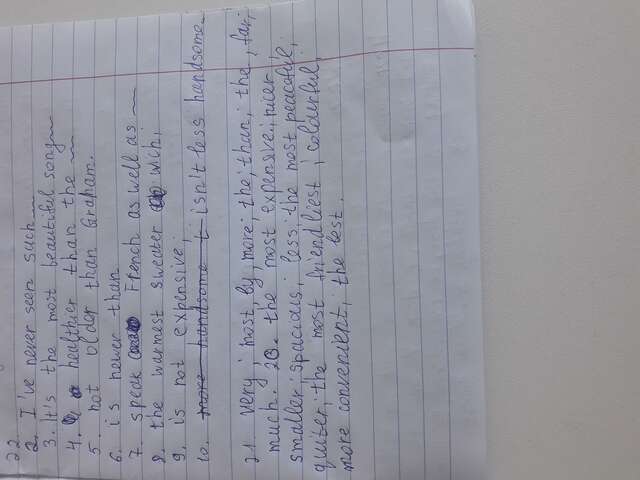 22.
2. I've never seen such
3. It's the most beautiful song
4. healthier than the
5. not older than Graham.
6. is newer than
7. speak French as well as
8. the warmest sweater wich,
9. is not expensive,
10. more handsome t isn't less handsome.
21. very; most by, more; the; than; the; far;
much. 20. the most expensive; nicer;
smaller; spacious; less; the most peaceful;
quiter; the most friendliest; colourful;
more convenient; the best.